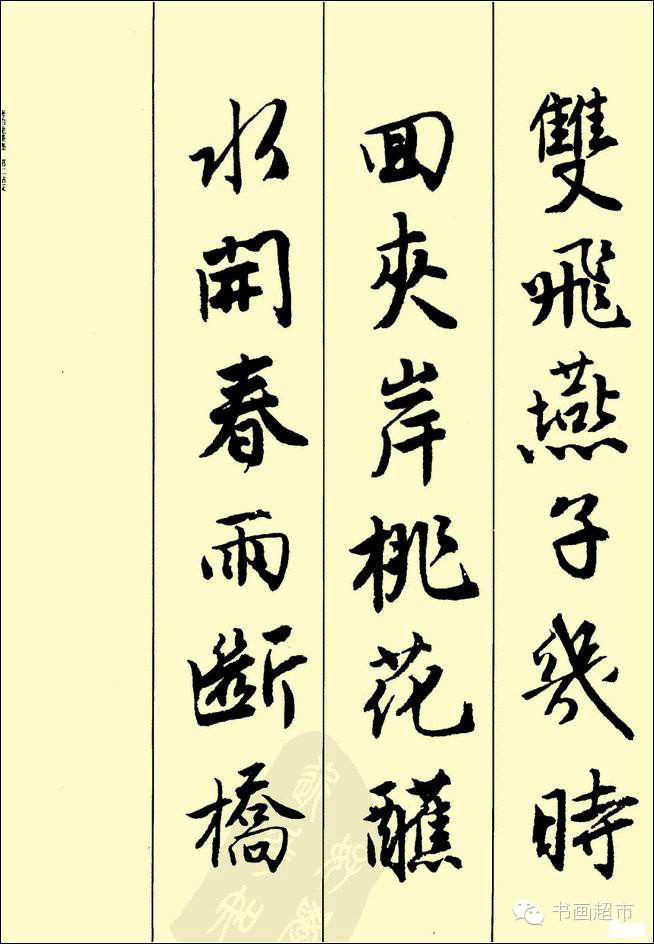 雙飛燕子幾時
回夾岸桃花蘸
水開春雨斷橋
书画超市